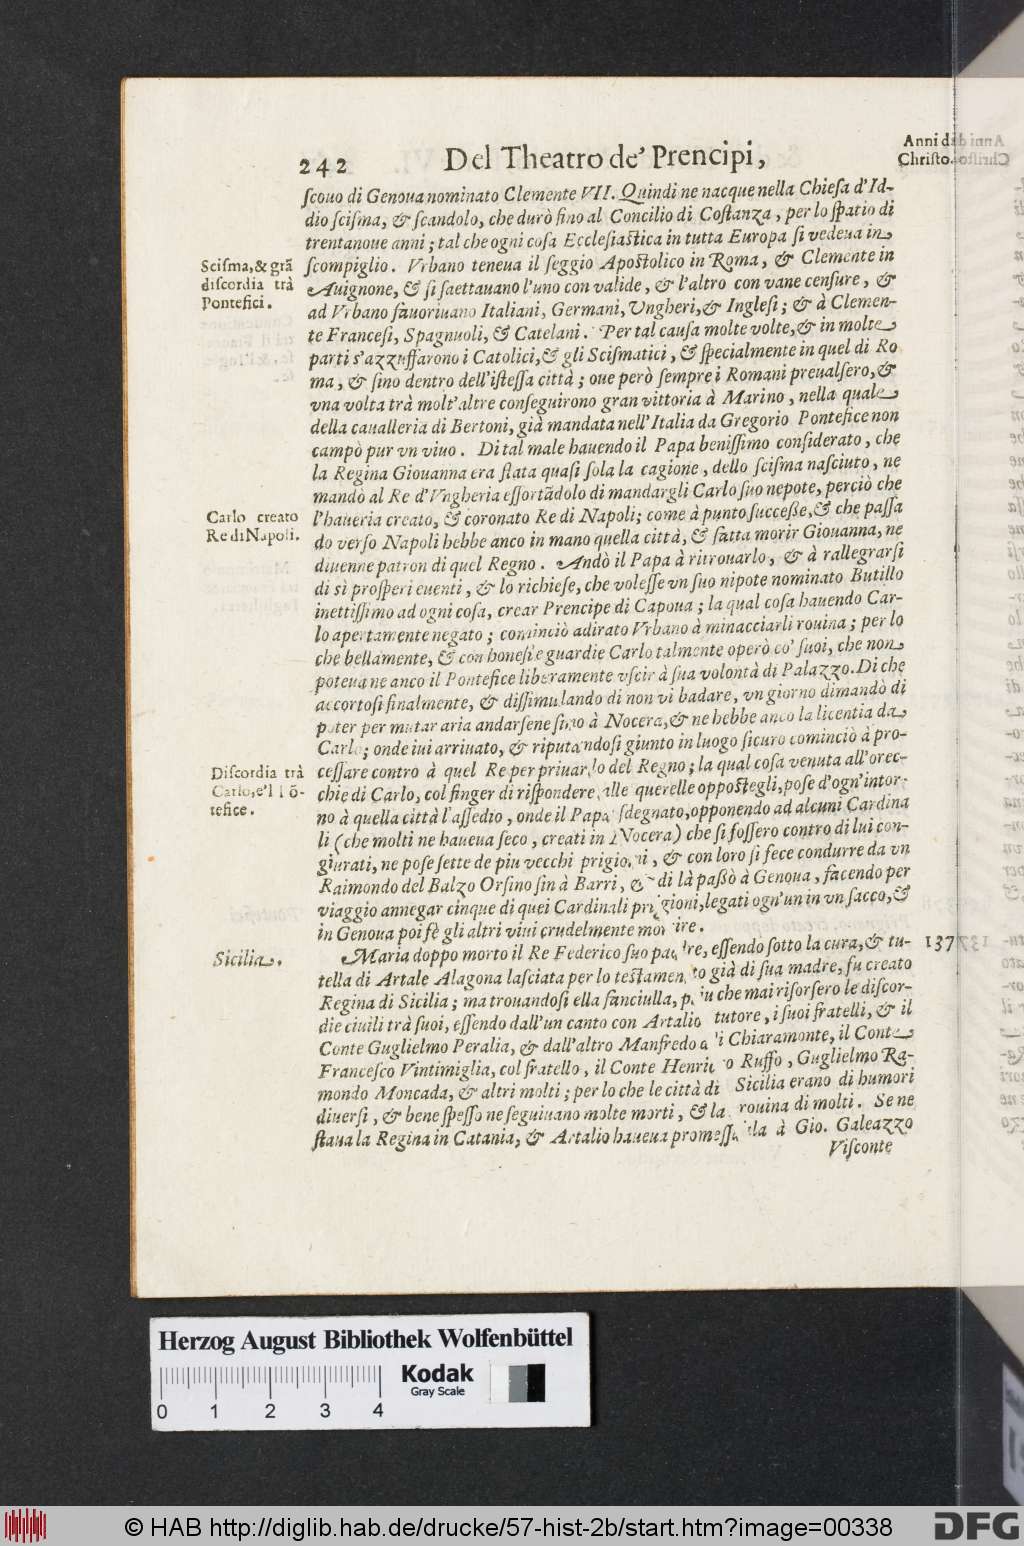 242 Del Theatro de' Prencipi,
Anni di
Christo.
ſcouo di Genoua nominato Clemente VII. Quindi ne nacque nella Chieſa d'Id-
dio ſciſma, & ſcandolo, che durò fino al Concilio di Coſtanza, per lo ſpatio di
trentanoue anni; tal che ogni coſa Eccleſiaſtica in tutta Europa ſi vedeua in
Sciſma, & grã
diſcordia trà
Pontefici.
ſcompiglio. Vrbano teneua il ſeggio Apoſtolico in Roma, & Clemente in
Auignone, & ſi ſaettauano l'uno con valide, & l'altro con vane cenſure, &
ad Vrbano fauoriuano Italiani, Germani, Vngheri, & Ingleſi; & à Clemen-
te Franceſi, Spagnuoli, & Catelani. Per tal cauſa molte volte, & in molte
parti s'azzuffarono i Catolici, & gli Sciſmatici, & ſpecialmente in quel di Ro
ma, & fino dentro dell'iſteſſa città; oue però ſempre i Romani preualſero, &
vna volta trà molt'altre conſeguirono gran vittoria à Marino, nella quale
della caualleria di Bertoni, già mandata nell'Italia da Gregorio Pontefice non
campò pur vn viuo. Di tal male hauendo il Papa beniſſimo conſiderato, che
la Regina Giouanna era ſtata quaſi ſola la cagione, dello ſciſma naſciuto, ne
mandò al Re d'Vngheria eſſortãdolo di mandargli Carlo ſuo nepote, perciò che
Carlo creato
Re di Napoli.
l'haueria creato, & coronato Re di Napoli; come à punto ſucceße, & che paſſa
do verſo Napoli hebbe anco in mano quella città, & fatta morir Giouanna, ne
diuenne patron di quel Regno. Andò il Papa à ritrouarlo, & à rallegrarſi
di sì proſperi euenti, & lo richieſe, che voleſſe vn ſuo nipote nominato Butillo
inettiſſimo ad ogni coſa, crear Prencipe di Capoua; la qual coſa hauendo Car-
lo apertamente negato; cominciò adirato Vrbano à minacciarli rouina; per lo
che bellamente, & con honeſte guardie Carlo talmente operò co' ſuoi, che non
poteua ne anco il Pontefice liberamente vſcir à ſua volontà di Palazzo. Di che
accortoſi finalmente, & diſſimulando di non vi badare, vn giorno dimandò di
poter per mutar aria andarſene fino à Nocera, & ne hebbe anco la licentia da
Carlo; onde iui arriuato, & riputandoſi giunto in luogo ſicuro cominciò à pro-
Diſcordia trà
Carlo, e'l Põ-
tefice.
ceſſare contro à quel Re per priuarlo del Regno; la qual coſa venuta all'orec-
chie di Carlo, col finger di riſpondere alle querelle oppoſtegli, poſe d'ogn'intor-
no à quella città l'aſſedio, onde il Papa ſdegnato, opponendo ad alcuni Cardina
li (che molti ne haueua ſeco, creati in Nocera) che ſi foſſero contro di lui con-
giurati, ne poſe ſette de piu vecchi prigioni, & con loro ſi fece condurre da vn
Raimondo del Balzo Orſino fin à Barri, & di là paßò à Genoua, facendo per
viaggio annegar cinque di quei Cardinali prigioni, legati ogn'un in vn ſacco, &
in Genoua poi fè gli altri viui crudelmente morire.
Sicilia.
1377
Maria doppo morto il Re Federico ſuo padre, eſſendo ſotto la cura, & tu-
tella di Artale Alagona laſciata per lo teſtamento già di ſua madre, fu creato
Regina di Sicilia; ma trouandoſi ella fanciulla, piu che mai riſorſero le diſcor-
die ciuili trà ſuoi, eſſendo dall'un canto con Artalio tutore, i ſuoi fratelli, & il
Conte Guglielmo Peralia, & dall'altro Manfredo di Chiaramonte, il Conte
Franceſco Vintimiglia, col fratello, il Conte Henrico Ruffo, Guglielmo Ra-
mondo Moncada, & altri molti; per lo che le città di Sicilia erano di humori
diuerſi, & bene ſpeſſo ne ſeguiuano molte morti, & la rouina di molti. Se ne
ſtaua la Regina in Catania, & Artalio haueua promeſſala à Gio. Galeazzo
Viſconte
Herzog August Bibliothek Wolfenbüttel
Kodak
Gray Scale
0 1 2 3 4
© HAB http://diglib.hab.de/drucke/57-hist-2b/start.htm?image=00338
DFG